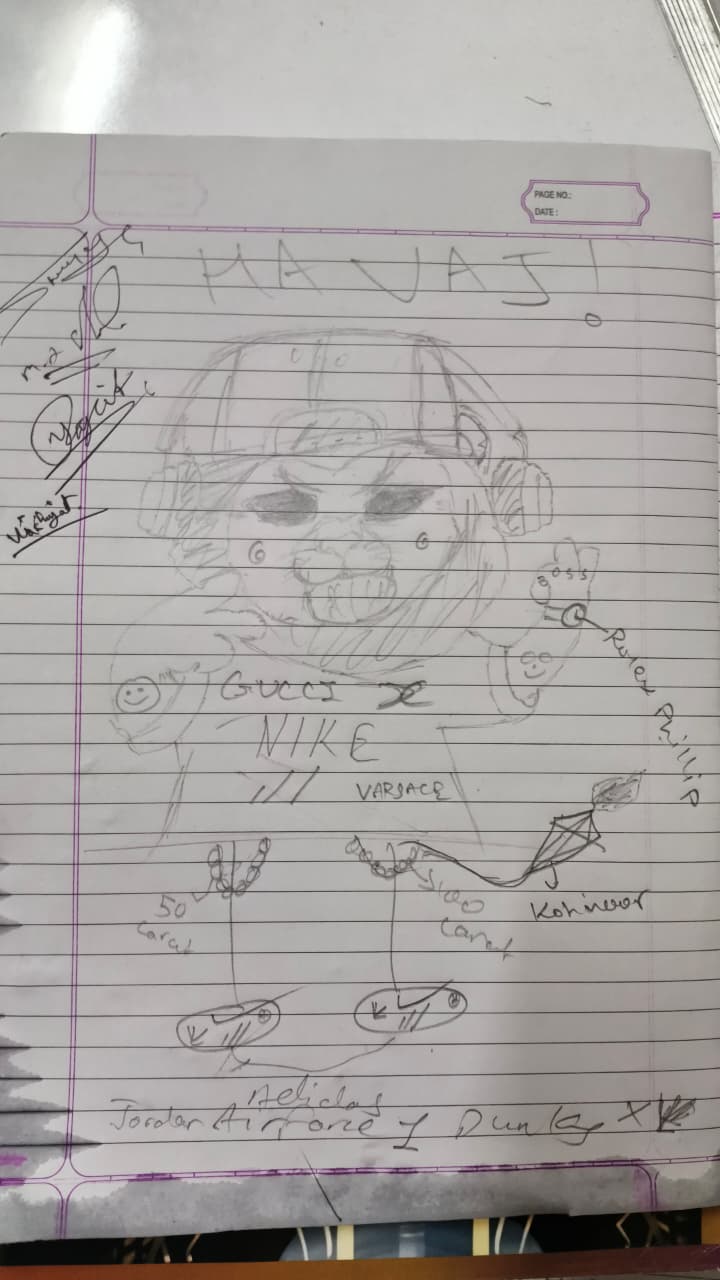 PAGE NO.:
DATE :
HAVAJ!
M.A
Boss
Rolex
Phillip
GUCCI
NIKE
VARSACE
50
Carat
100
Carat
Kohinoor
Adidas
Jordan Airforce 1 Dunks X